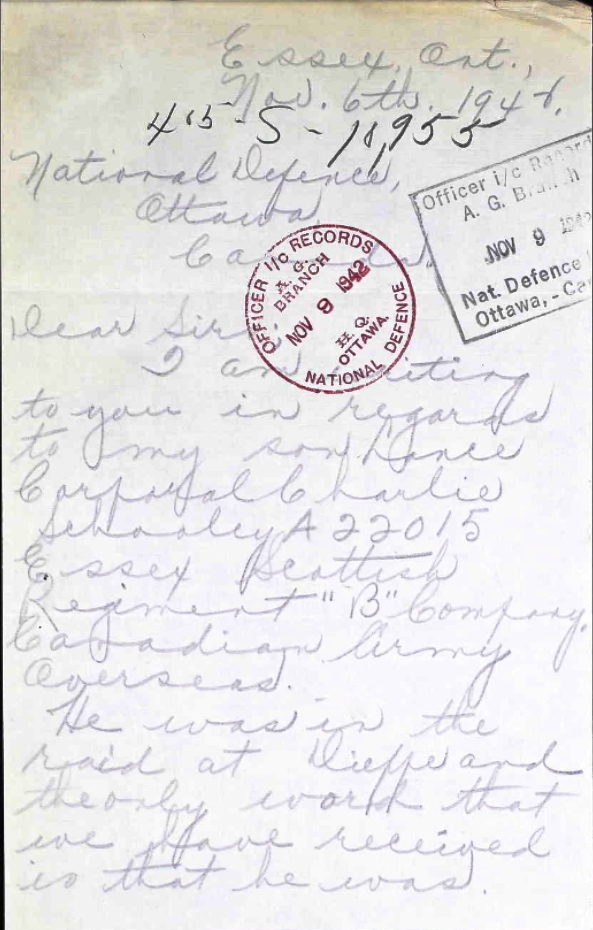 Essex, Ont.,
Nov. 6th. 1942.
405-S-18,955
National Defence,
Ottawa,
Canada.
Officer i/c Record
A. G. Branch
NOV 9 1942
Nat. Defence
Ottawa, - Ca
OFFICER I/C RECORDS
A. G.
BRANCH
NOV 9 1942
H. Q.
OTTAWA.
NATIONAL DEFENCE
Dear Sir:
I am writing
to you in regards
to my son Lance
Corporal Charlie
Schooley A 22015
Essex Scottish
Regiment "B" Company,
Canadian Army
Overseas.
He was in the
raid at Dieppe and
the only word that
we have received
is that he was